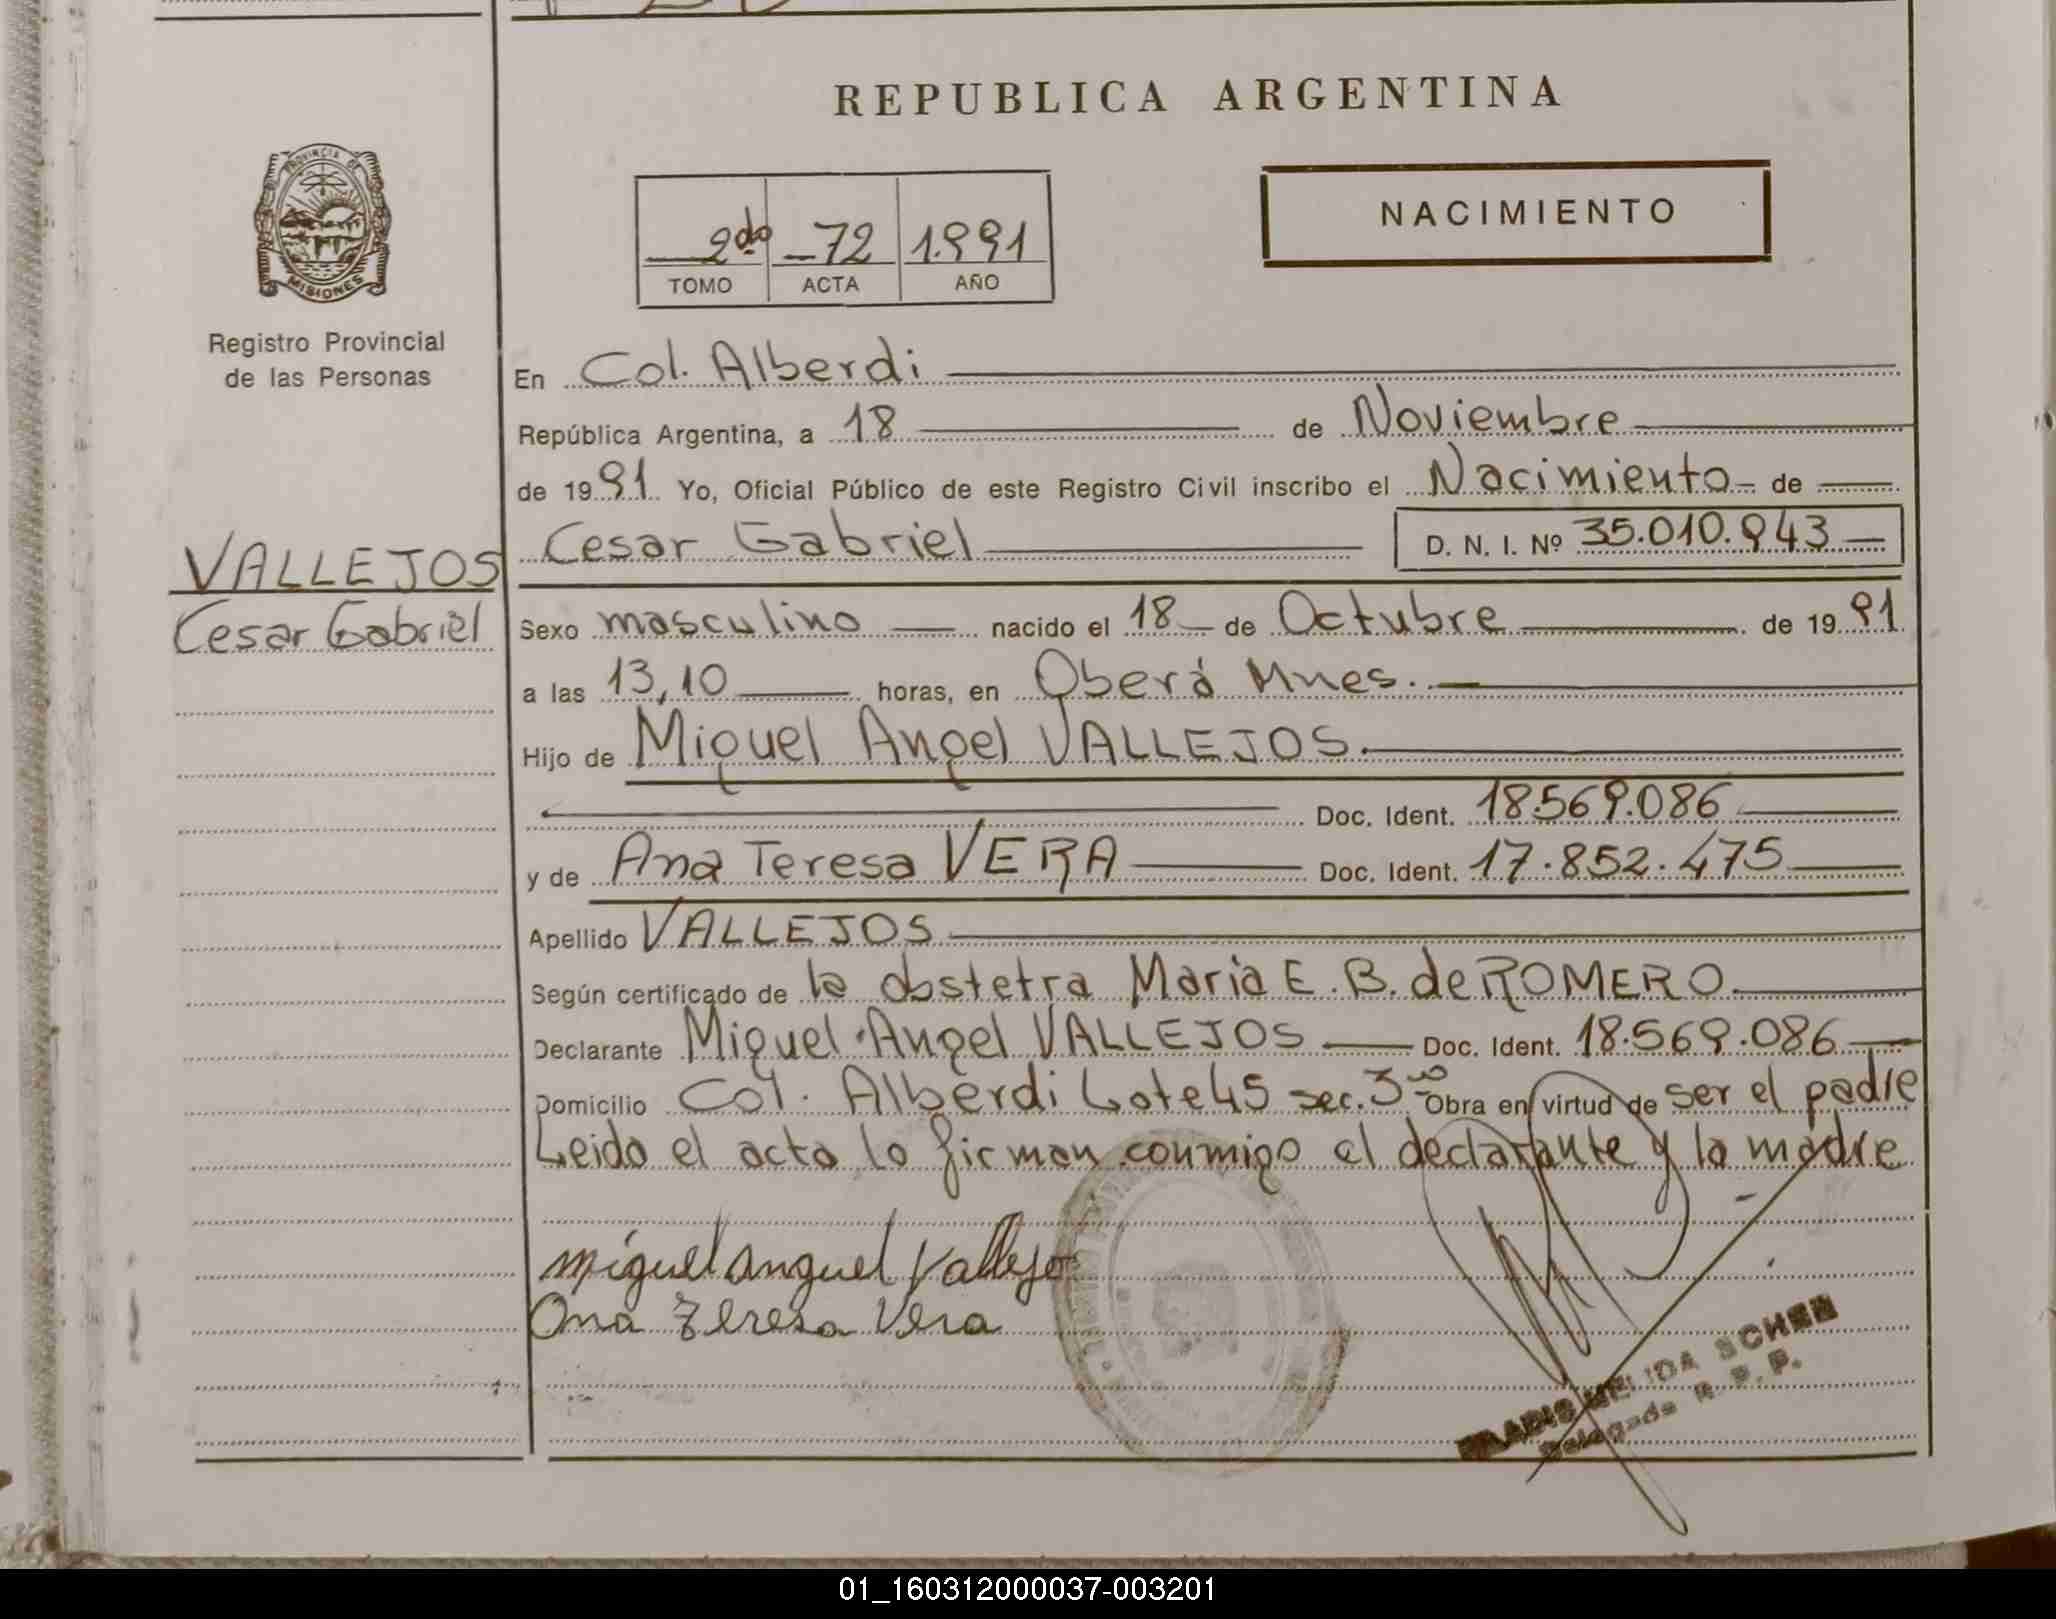 REPUBLICA ARGENTINA
PROVINCIA DE MISIONES
Registro Provincial
de las Personas
NACIMIENTO
2do 72 1.991
TOMO ACTA AÑO
En Col. Alberdi
República Argentina, a 18 de Noviembre
de 1991 Yo, Oficial Público de este Registro Civil inscribo el Nacimiento de
VALLEJOS
Cesar Gabriel
Cesar Gabriel D. N. I. Nº 35.010.943
Sexo masculino nacido el 18 de Octubre de 1991
a las 13,10 horas, en Oberá Mnes.
Hijo de Miguel Angel VALLEJOS.
Doc. Ident. 18.569.086
y de Ana Teresa VERA Doc. Ident. 17.852.475
Apellido VALLEJOS
Según certificado de la obstetra Maria E. B. de ROMERO
Declarante Miguel Angel VALLEJOS Doc. Ident. 18.569.086
Domicilio Col. Alberdi Lote 45 sec. 3ra Obra en virtud de ser el padre
Leido el acta lo firman conmigo el declarante y la madre
Miguel Anguel Vallejo
Ana Teresa Vera
NELIDA
Delegada R. P. P.
01_160312000037-003201